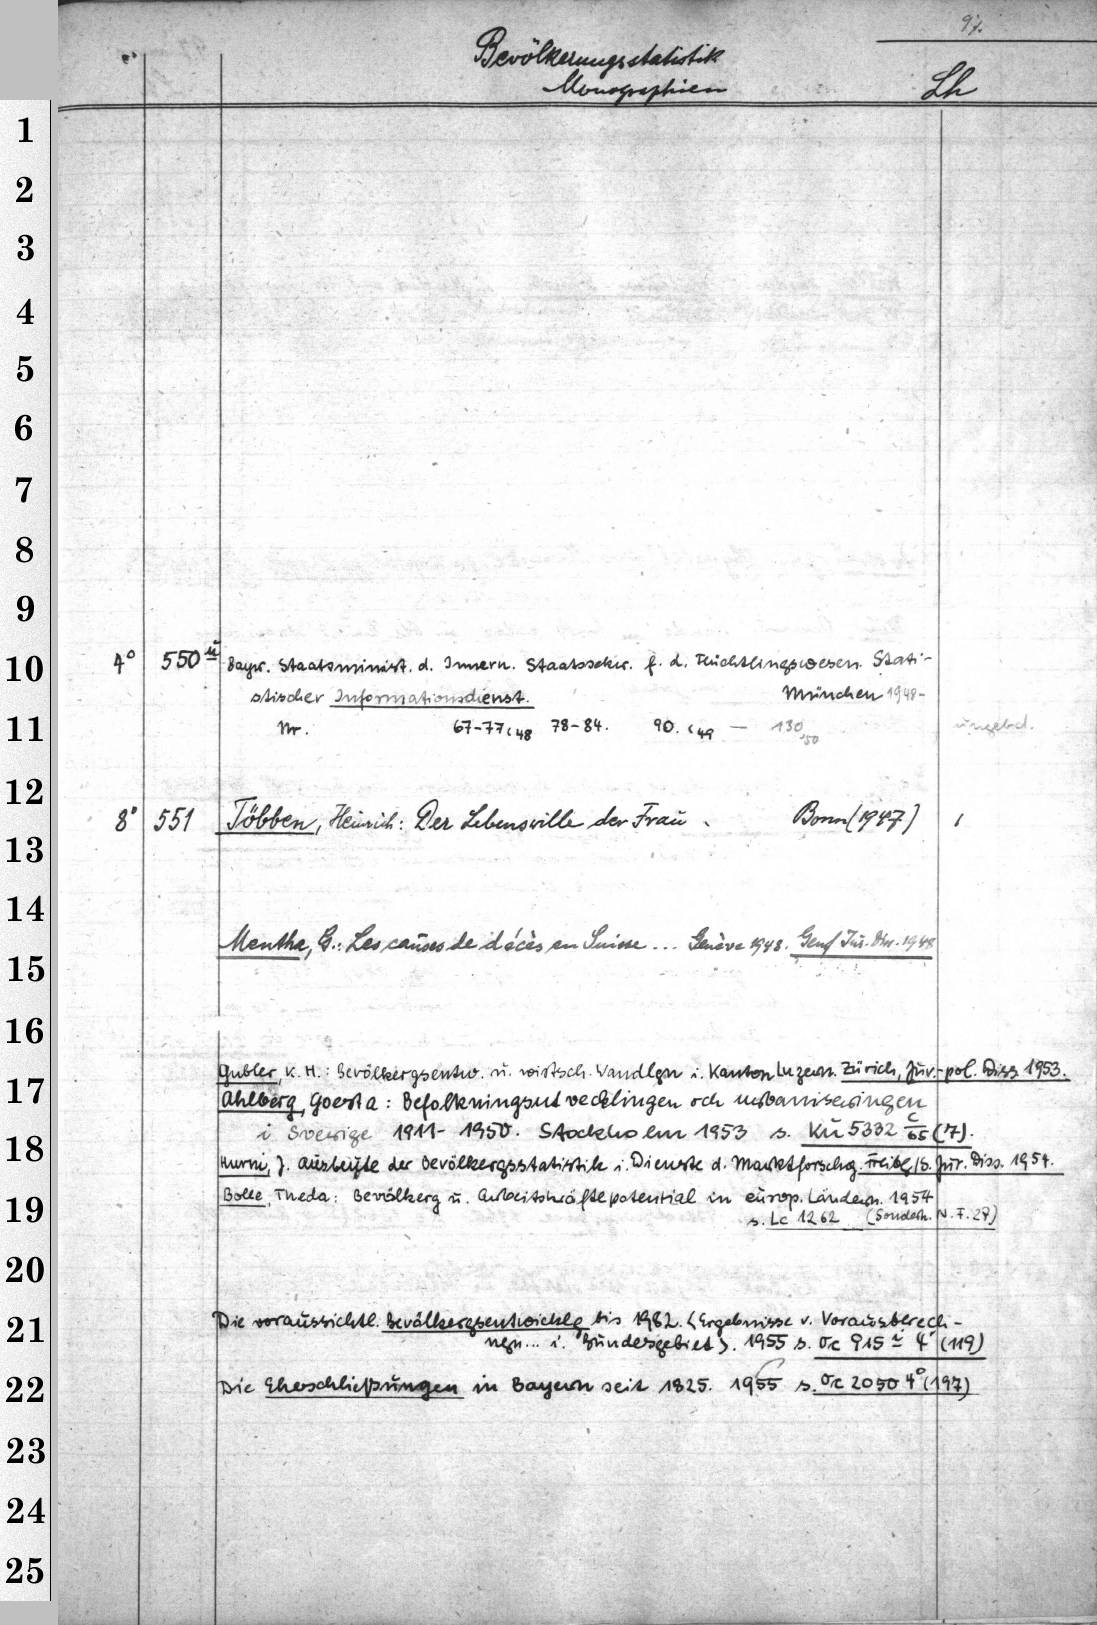 97.
Bevölkerungsstatistik
Monographien
Lh
1
2
3
4
5
6
7
8
9
10
4° 550 ü Bayr. Staatsminist. d. Innern. Staatssekr. f. d. Flüchtlingswesen. Stati-
stischer Informationsdienst. München 1948-
11
Nr. 67-77 (48 78-84. 90. (49 — 130 '50 ungebd.
12
8° 551 Többen, Heinrich: Der Lebenswille der Frau. Bonn (1947) 1
13
14
Mentha, G.: Les causes de décès en Suisse ... Genève 1948. Genf Jur. Diss. 1948
15
16
Gubler, K. H.: Bevölkergsentw. u. wirtsch. Wandlgn i. Kanton Luzern. Zürich, Jur.-pol. Diss 1953.
17
Ahlberg, Goesta: Befolkningsutvecklingen och urbaniseringen
i Sverige 1911-1950. Stockholm 1953 s. Kü 5332 c/65 (7).
18
Hurni, J. Ausbeute der Bevölkergsstatistik i. Dienste d. Marktforschg. Freibg/S. Jur. Diss. 1954.
Bolle, Theda: Bevölkerg u. Arbeitskräftepotential in europ. Ländern. 1954
19
s. Lc 1262 (Sonderh. N. F. 27)
20
21
Die voraussichtl. Bevölkergsentwicklg bis 1982. (Ergebnisse v. Vorausberech-
ngn ... i. Bundesgebiet). 1955 s. Oc 915 4° (119)
22
Die Eheschließungen in Bayern seit 1825. 1955 s. Oc 2050 4° (197)
23
24
25